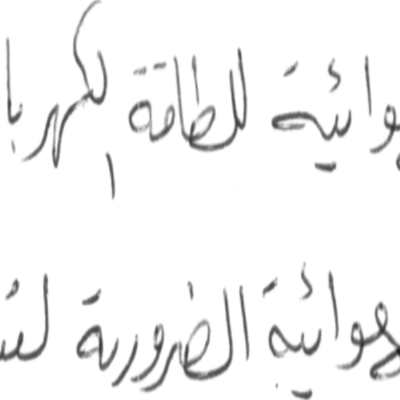 وائية للطاقة الكهربا
هوائية الضرورية لت